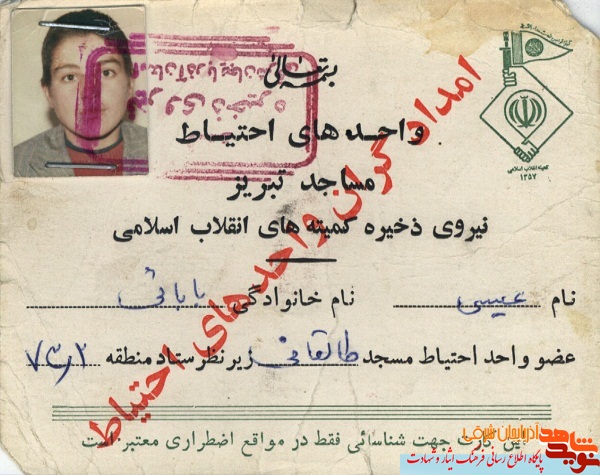 بسمه تعالی
واحدهای احتیاط
مساجد تبریز
نیروی ذخیره کمیته های انقلاب اسلامی
نام عیسی نام خانوادگی بابائی
عضو واحد احتیاط مسجد طالقانی زیر نظر ستاد منطقه
این کارت جهت شناسائی فقط در مواقع اضطراری معتبر است
امدادگران واحدهای احتیاط
کمیته انقلاب اسلامی
۱۳۵۷
نیروی ذخیره
نوید شاهد
آذربایجان شرقی
پایگاه اطلاع رسانی فرهنگ ایثار و شهادت